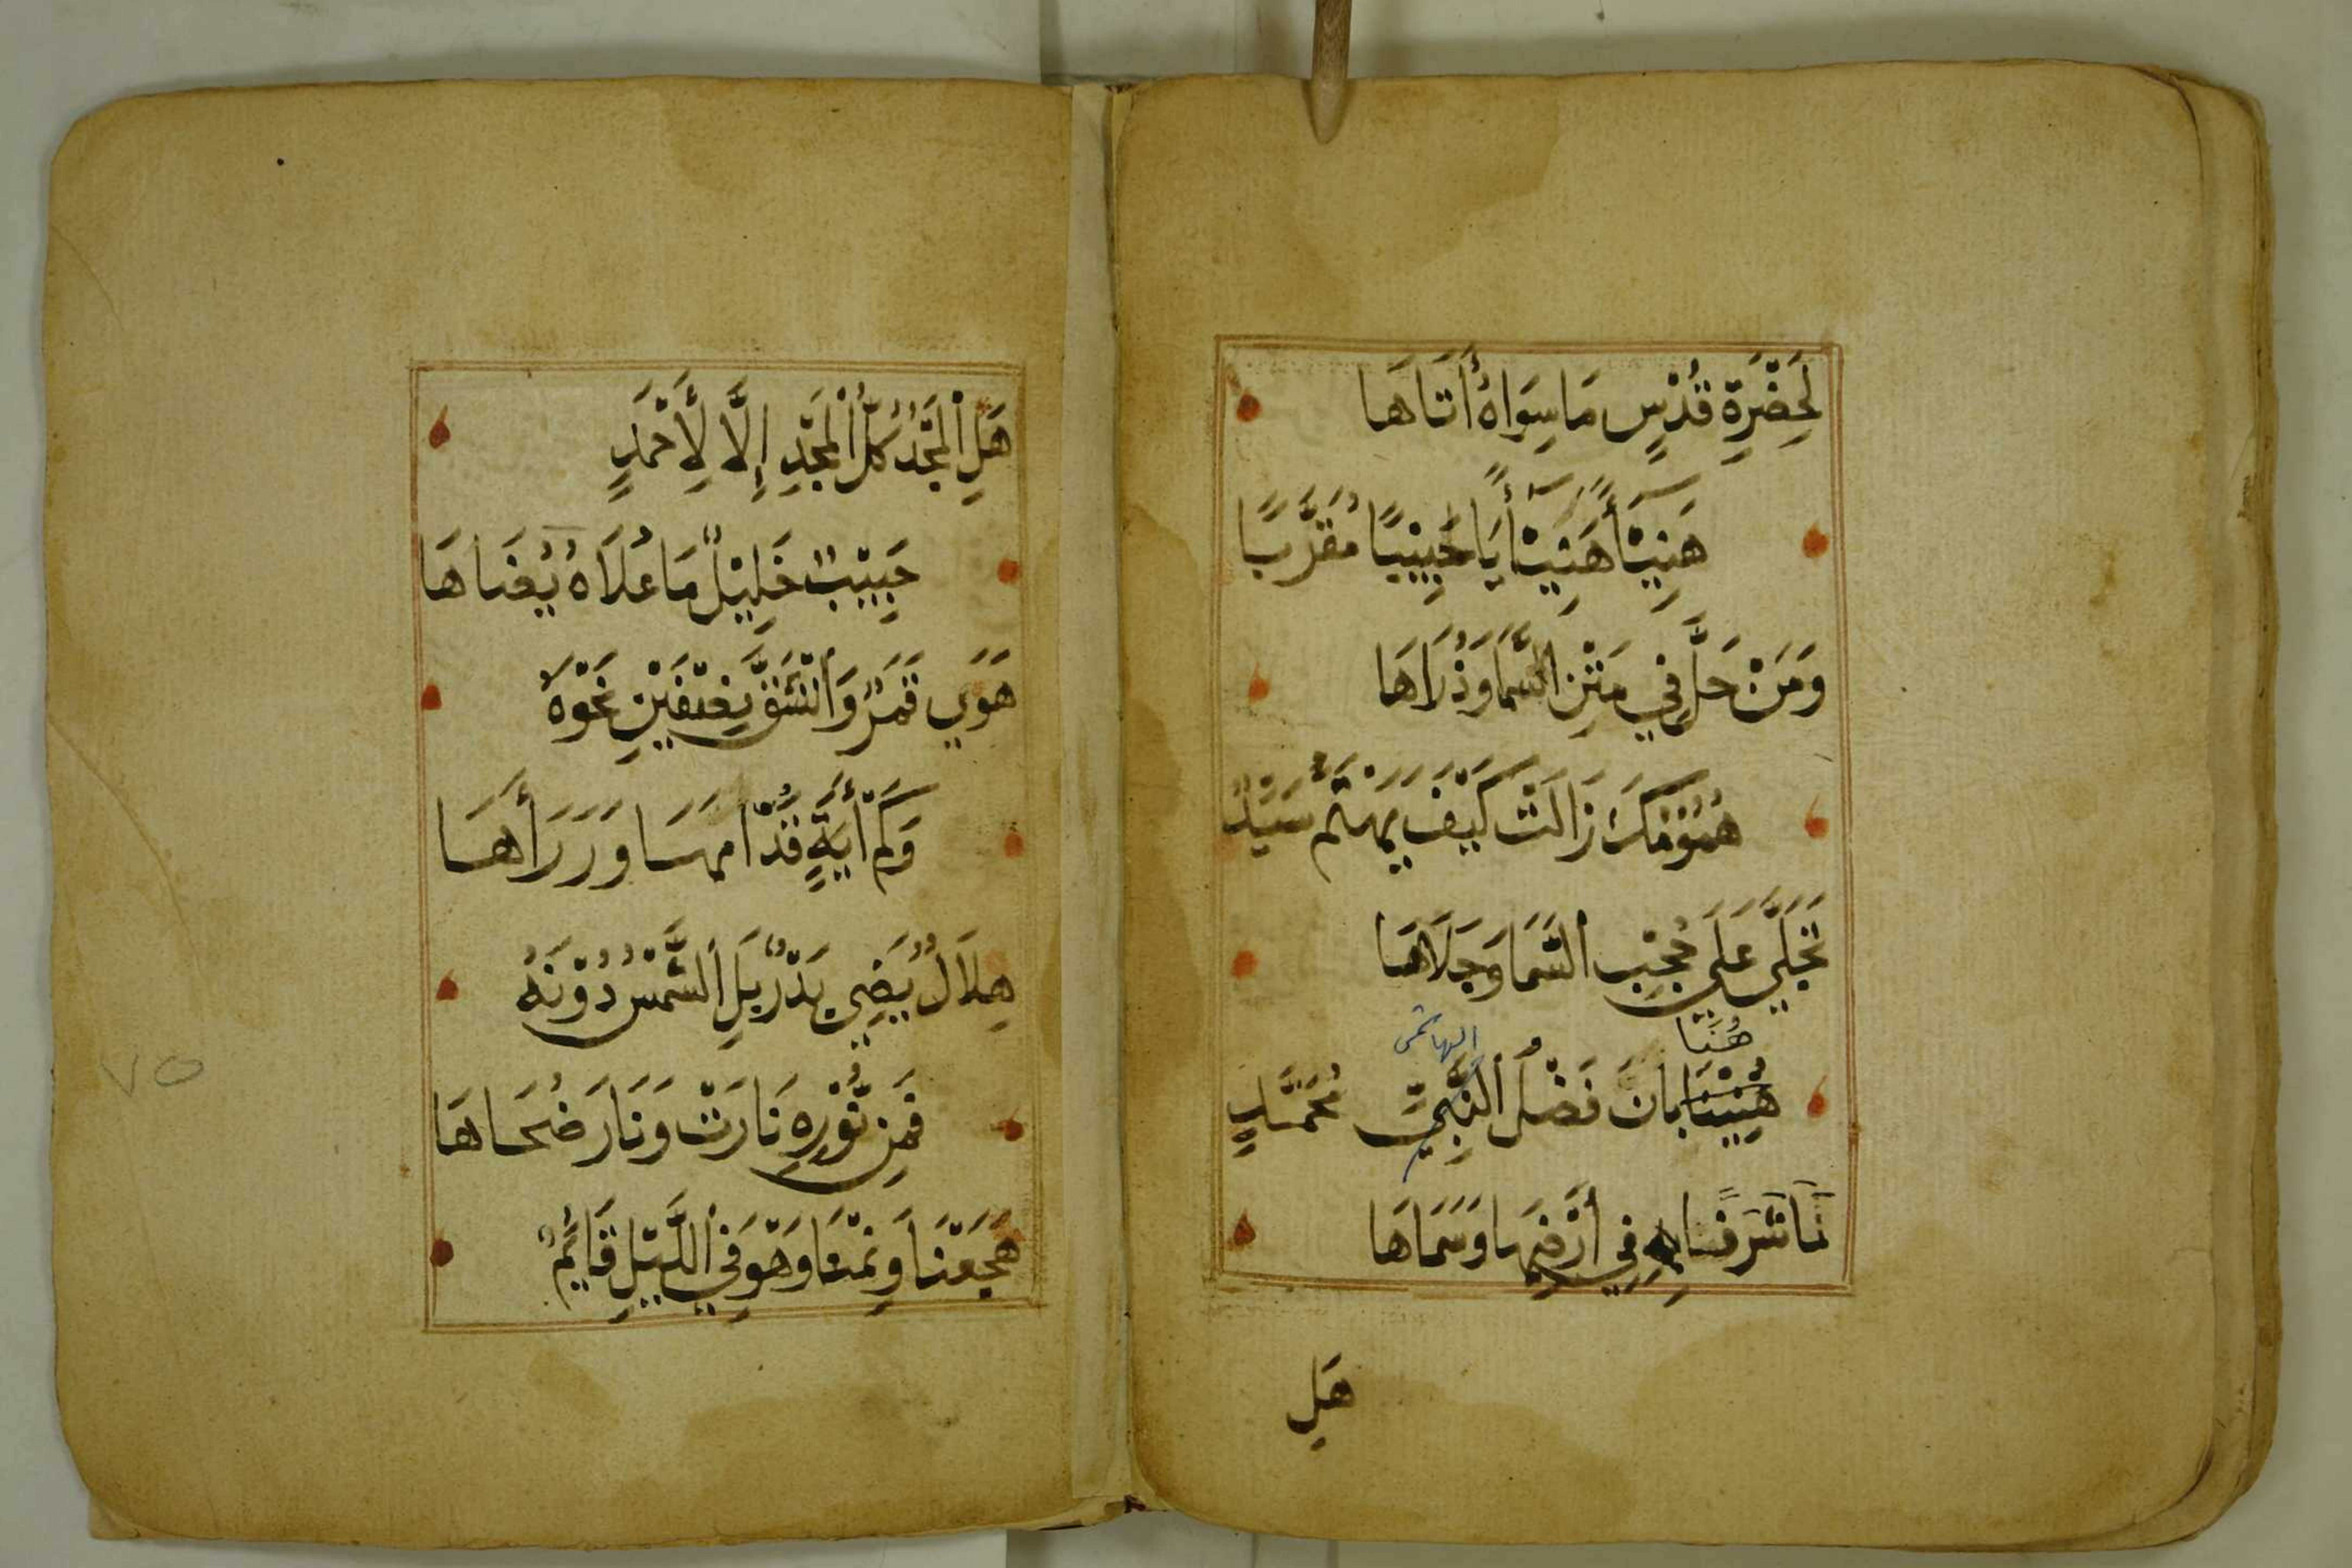 لِحَضْرَةِ قُدْسٍ مَا سِوَاهُ أَتَاهَا
هَنِيْئًا هَنِيْئًا يَا حَبِيْبًا مُقَرَّبًا
وَمَنْ حَلَّ فِي مَتْنِ السَّمَا وَذُرَاهَا
هُمُوْمُكَ زَالَتْ كَيْفَ يَهْتَمُّ سَيِّدٌ
تَجَلَّي عَلَي حُجْبِ السَّمَا وَجَلَاهَا
هُنَا
الهاشمي
بَانَ فَضْلُ النَّبِيِّ مُحَمَّدٍ
لَنَا شَرَفًا بِهِ فِي أَرْضِهَا وَسَمَاهَا
هَلِ
هَلِ الْمَجْدُ كُلُّ الْمَجْدِ إِلَّا لِأَحْمَدٍ
حَبِيْبٌ خَلِيْلٌ مَا عُلَاهُ يُضَاهَا
هَوَي قَمَرٌ وَانْشَقَّ نِصْفَيْنِ نَحْوَهُ
وَكَمْ أَيَةٍ قُدَّامَهَا وَرَرَأَهَا
هِلَالٌ يُضِي بَدْرٌ بَلِ الشَّمْسُ دُوْنَهُ
فَمِنْ نُوْرِهِ نَارَتْ وَنَارَ ضُحَاهَا
هَجَعْنَا وَنِمْنَا وَهْوَ فِي اللَّيْلِ قَائِمٌ
٧٥